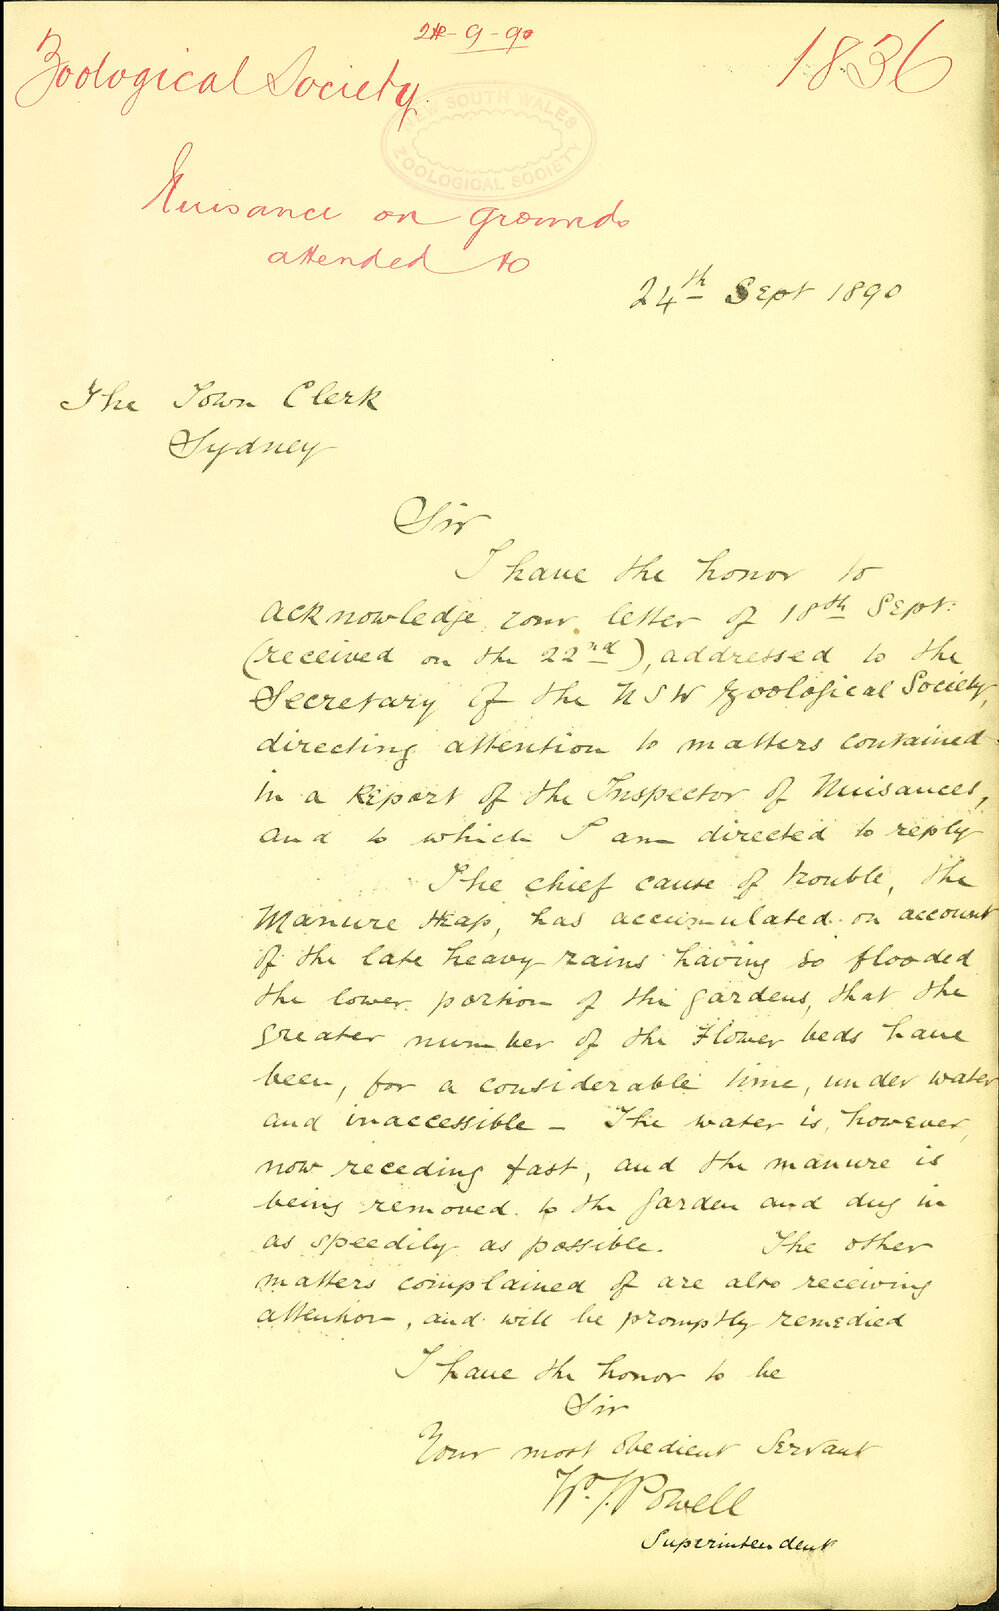 24-9-90
Zoological Society
1836
NEW SOUTH WALES
ZOOLOGICAL SOCIETY
Nuisance on grounds
attended to
24th Sept 1890
The Town Clerk
Sydney
Sir
I have the honor to
acknowledge your letter of 18th Sept:
(received on the 22nd), addressed to the
Secretary of the NSW Zoological Society,
directing attention to matters contained
in a Report of the Inspector of Nuisances,
and to which I am directed to reply
The chief cause of trouble, the
Manure Heap, has accumulated on account
of the late heavy rains having so flooded
the lower portion of the gardens, that the
greater number of the Flower beds have
been, for a considerable time, under water
and inaccessible – The water is, however,
now receding fast, and the manure is
being removed to the Garden and dug in
as speedily as possible. The other
matters complained of are also receiving
attention, and will be promptly remedied
I have the honor to be
Sir
Your most obedient Servant
Wm. J. Powell
Superintendent